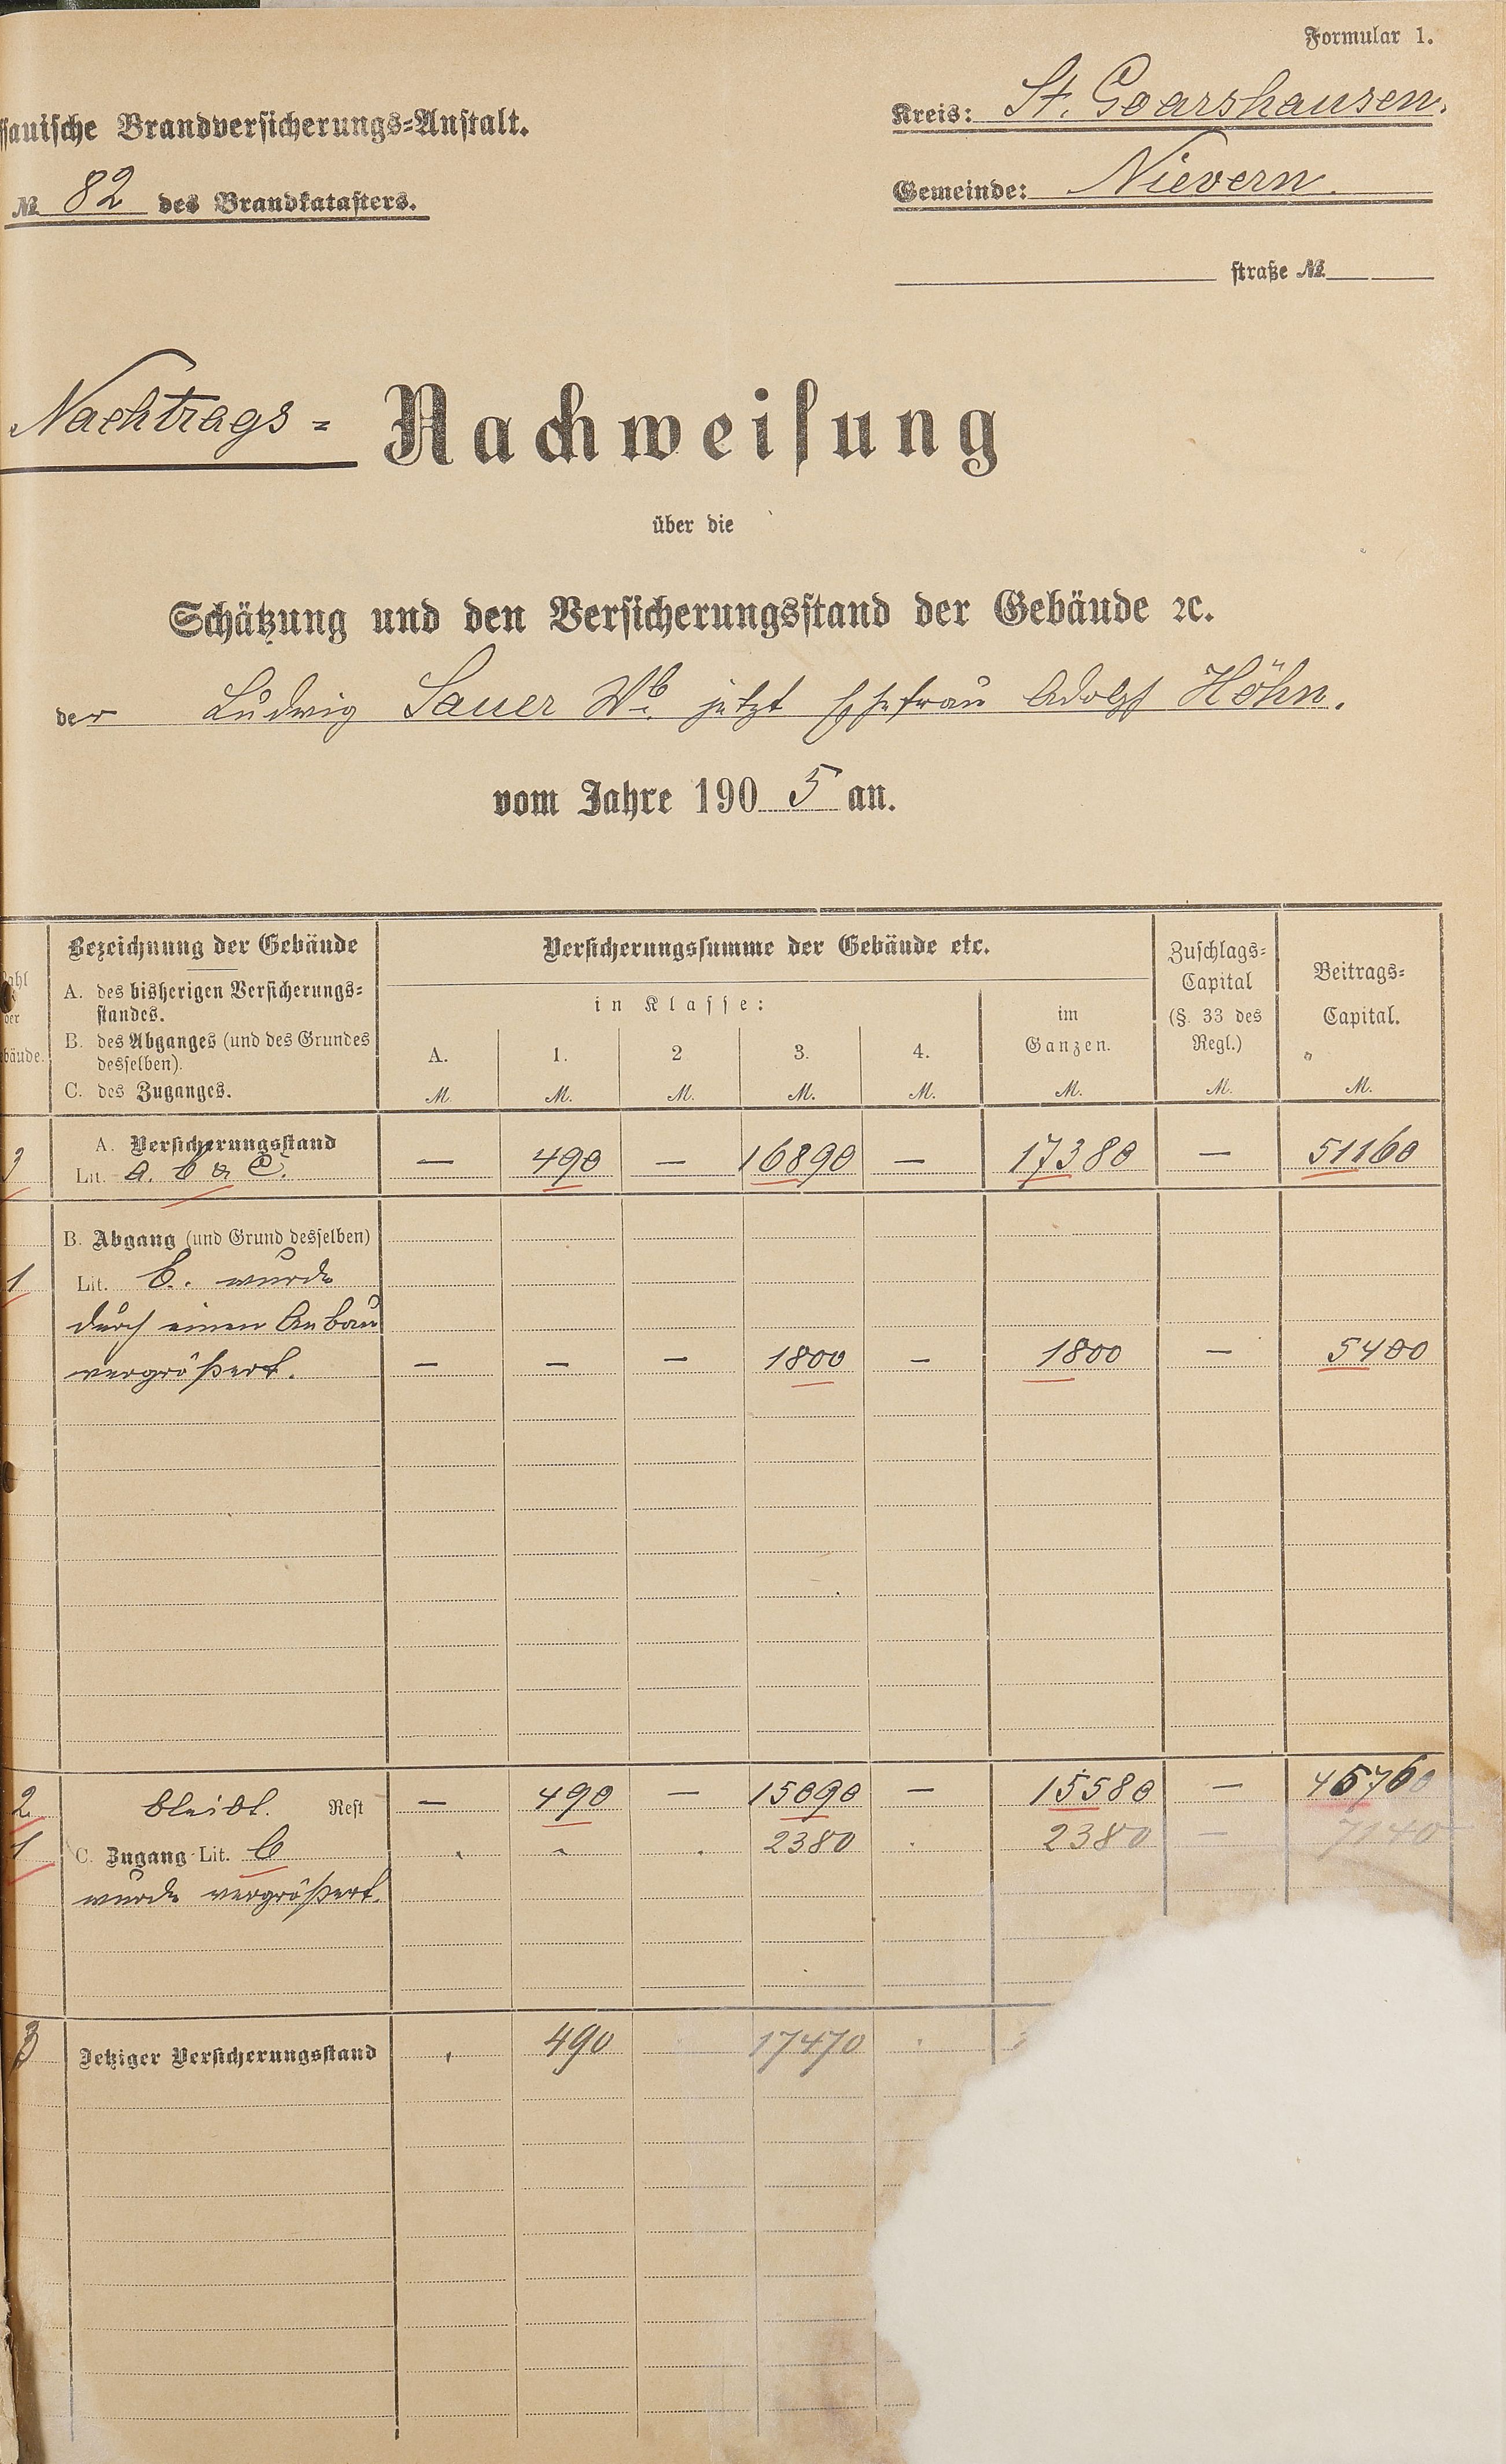 Formular 1.
ssauische Brandversicherungs-Anstalt.
Kreis: St. Goarshausen.
№ 82 des Brandkatasters.
Gemeinde: Nievern.
straße №
Nachtrags- Nachweisung
über die
Schätzung und den Versicherungsstand der Gebäude ꝛc.
der Ludwig Sauer Wb. jetzt Ehefrau Adolf Höhn.
vom Jahre 1905 an.
Zahl der Gebäude.
Bezeichnung der Gebäude
A. des bisherigen Versicherungs-
standes.
B. des Abganges (und des Grundes
desselben).
C. des Zuganges.
Versicherungssumme der Gebäude etc.
in Klasse:
A. 1. 2 3. 4.
M. M. M. M. M.
im
Ganzen.
M.
Zuschlags-
Capital
(§. 33 des
Regl.)
M.
Beitrags-
Capital.
M.
A. Versicherungsstand
3 Lit. a. b & c. — 490 — 16890 — 17380 — 51160
B. Abgang (und Grund desselben)
1 Lit. b. wurde
durch einen Anbau
vergrößert. — — — 1800 — 1800 — 5400
2 bleibt. Rest — 490 — 15090 — 15580 — 45760
1 C. Zugang Lit. b 2380 2380 — 7140
wurde vergrößert.
3 Jetziger Versicherungsstand 490 17470